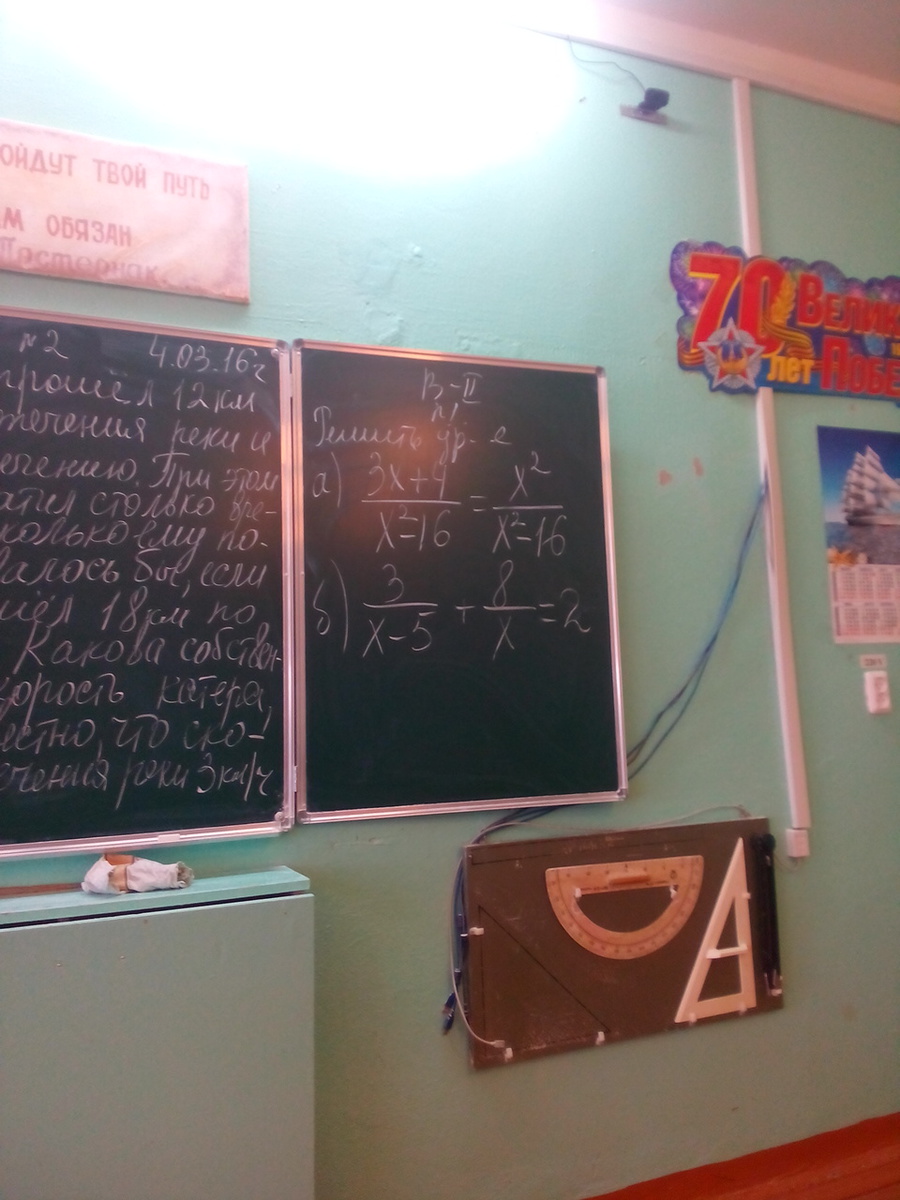 ОЙДУТ ТВОЙ ПУТЬ
М ОБЯЗАН
Пастернак
№2 4.03.16г
прошёл 12 км
течения реки и
ечению. При этом
атил столько вре-
колько ему по-
алось бы, если
шёл 18 км по
Какова собствен-
корость катера,
естно, что ско-
ечения реки 3 км/ч
В-II
№1
Решить ур-е
а) (3x+4)/(x²-16) = x²/(x²-16)
б) 3/(x-5) + 8/x = 2
70
лет
ВЕЛИК
ПОБЕ